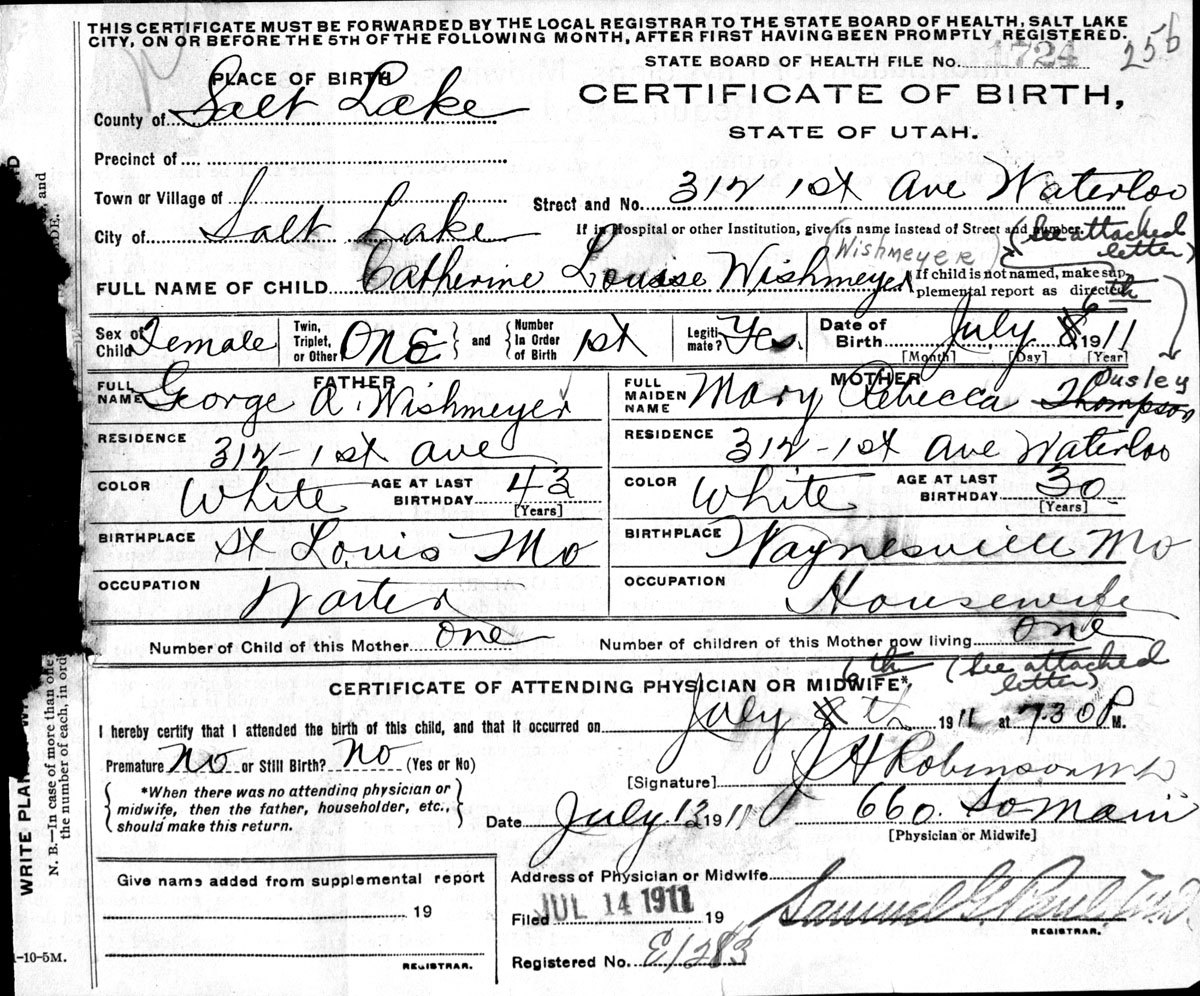 THIS CERTIFICATE MUST BE FORWARDED BY THE LOCAL REGISTRAR TO THE STATE BOARD OF HEALTH, SALT LAKE
CITY, ON OR BEFORE THE 5TH OF THE FOLLOWING MONTH, AFTER FIRST HAVING BEEN PROMPTLY REGISTERED.
256
STATE BOARD OF HEALTH FILE No. 1724
PLACE OF BIRTH
CERTIFICATE OF BIRTH,
STATE OF UTAH.
County of Salt Lake
Precinct of
Town or Village of
Street and No. 312 1st Ave Waterloo
City of Salt Lake
If in Hospital or other Institution, give its name instead of Street and number.
(Wishmeyer) (See attached letter)
FULL NAME OF CHILD Catherine Louise Wishmeyer
If child is not named, make sup-
plemental report as directed.
Sex of Child Female
Twin, Triplet, or Other One and Number In Order of Birth 1st
Legiti mate? Yes.
Date of Birth July 8 6th 1911
[Month] [Day] [Year]
FATHER
FULL NAME George A. Wishmeyer
MOTHER
FULL MAIDEN NAME Mary Rebecca Thompson Ousley
RESIDENCE 312 - 1st Ave
RESIDENCE 312 - 1st Ave Waterloo
COLOR White AGE AT LAST BIRTHDAY 43 [Years]
COLOR White AGE AT LAST BIRTHDAY 30 [Years]
BIRTHPLACE St Louis Mo
BIRTHPLACE Waynesville Mo
OCCUPATION
OCCUPATION Housewife
Number of Child of this Mother one
Number of children of this Mother now living one
6th (See attached letter)
CERTIFICATE OF ATTENDING PHYSICIAN OR MIDWIFE*.
I hereby certify that I attended the birth of this child, and that it occurred on July 8th 1911 at 7.30 P M.
Premature No or Still Birth? No (Yes or No)
[Signature] J H Robinson M D
*When there was no attending physician or
midwife, then the father, householder, etc.,
should make this return.
Date July 13 1911 660. So Main
[Physician or Midwife]
Give name added from supplemental report
19
REGISTRAR.
Address of Physician or Midwife
Filed JUL 14 1911 19
Samuel G. Paul M.D.
REGISTRAR.
Registered No. E1283
WRITE PLAINLY
N. B.—In case of more than one
the number of each, in ord
and
-10-5M.